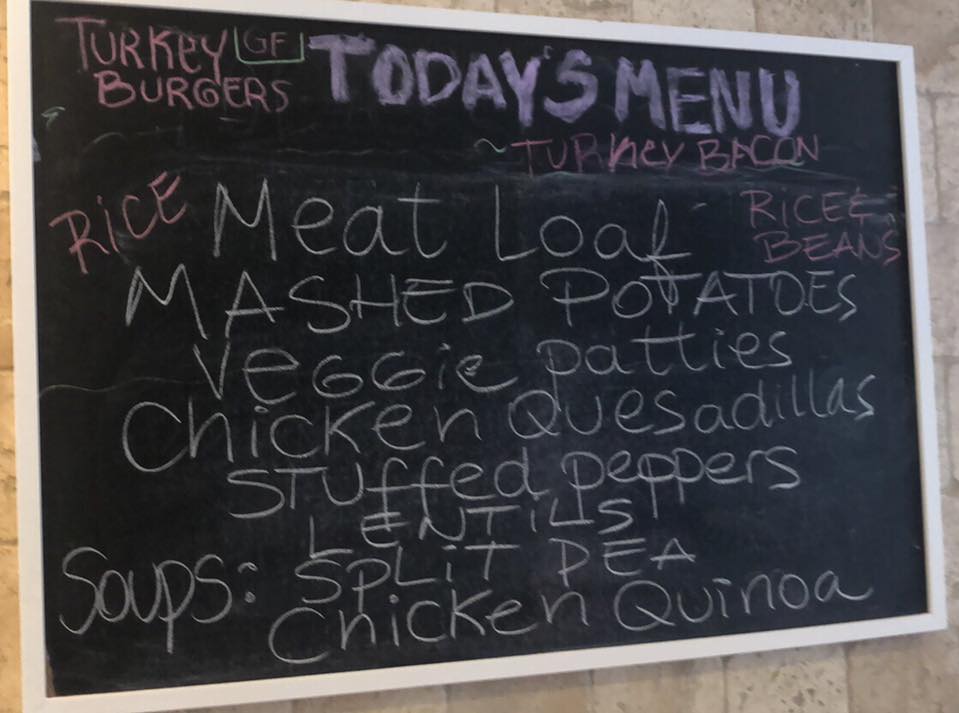 TURKEY GF
BURGERS
TODAY'S MENU
~TURKEY BACON
RICE
Meat Loaf
RICE &
BEANS
MASHED POTATOES
Veggie patties
Chicken Quesadillas
STuffed peppers
LENTILS
Soups: SPLIT PEA
Chicken Quinoa